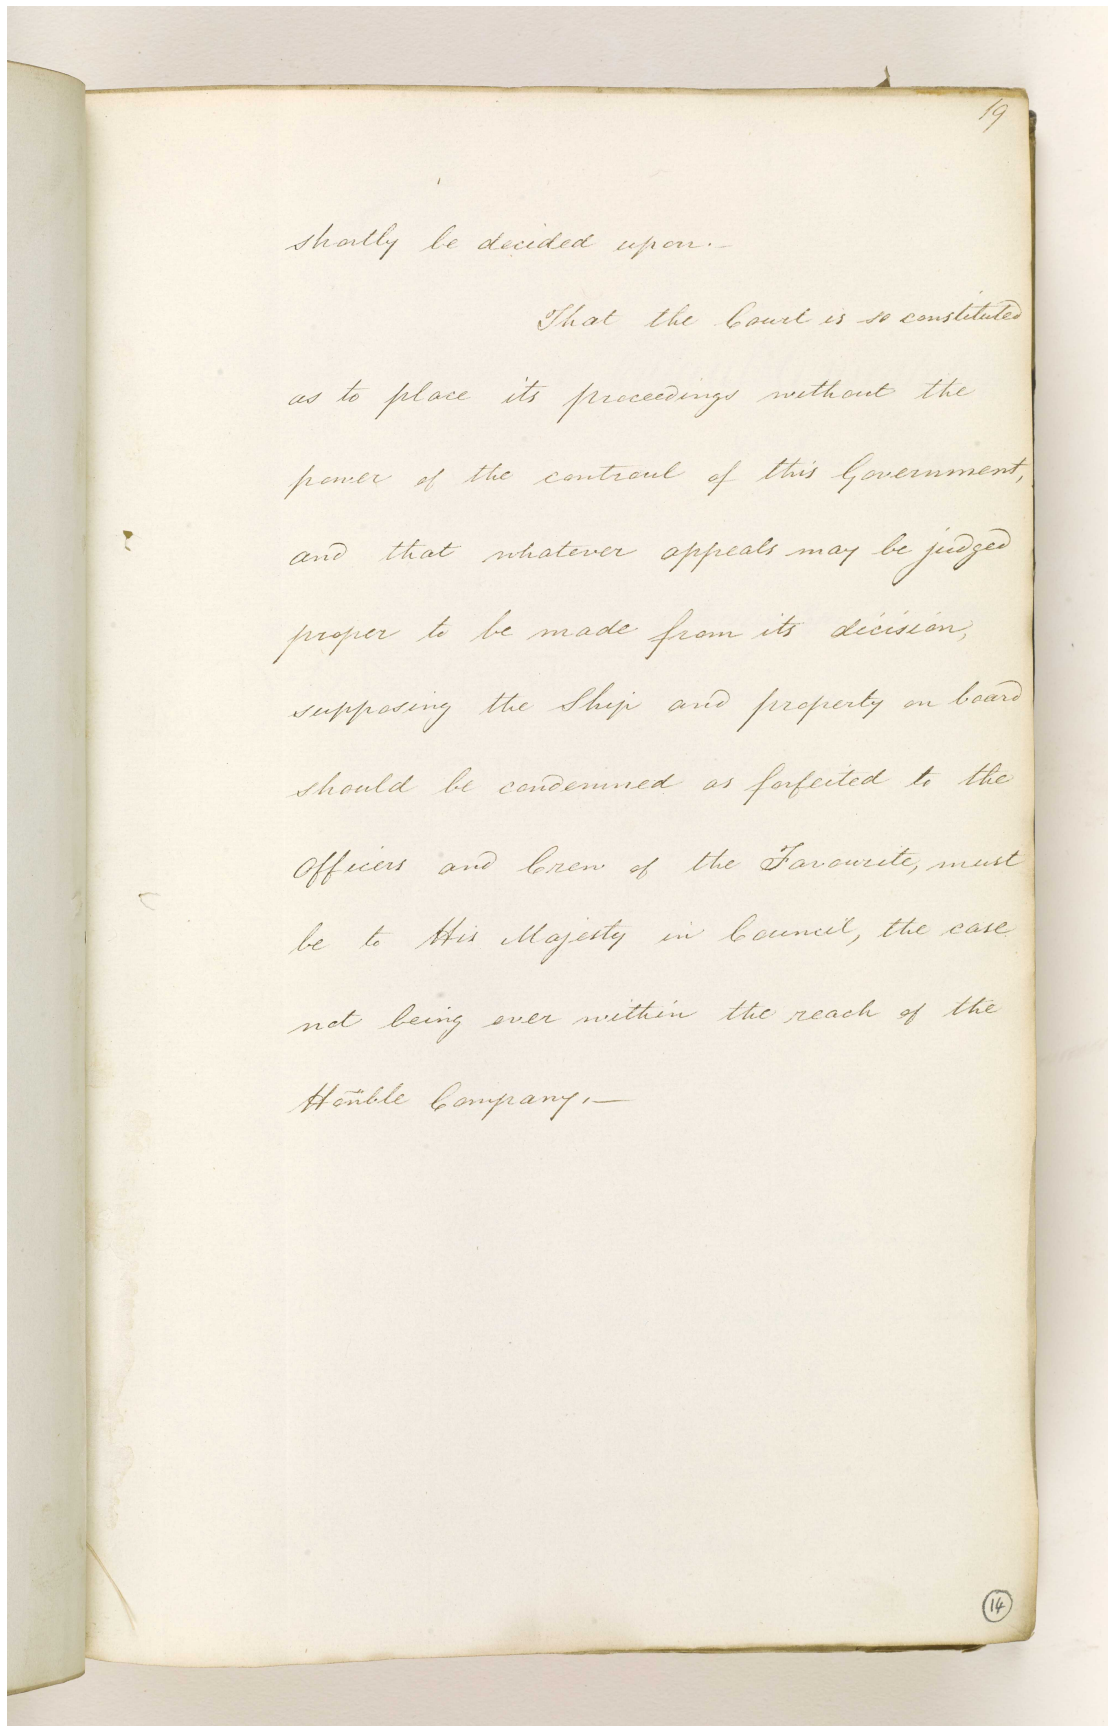 19
shortly be decided upon.—
That the Court is so constituted
as to place its proceedings without the
power of the controul of this Government,
and that whatever appeals may be judged
proper to be made from its decision,
supposing the Ship and property on board
should be condemned as forfeited to the
Officers and Crew of the Favourite, must
be to His Majesty in Council, the case
not being ever within the reach of the
Honble Company.—
14